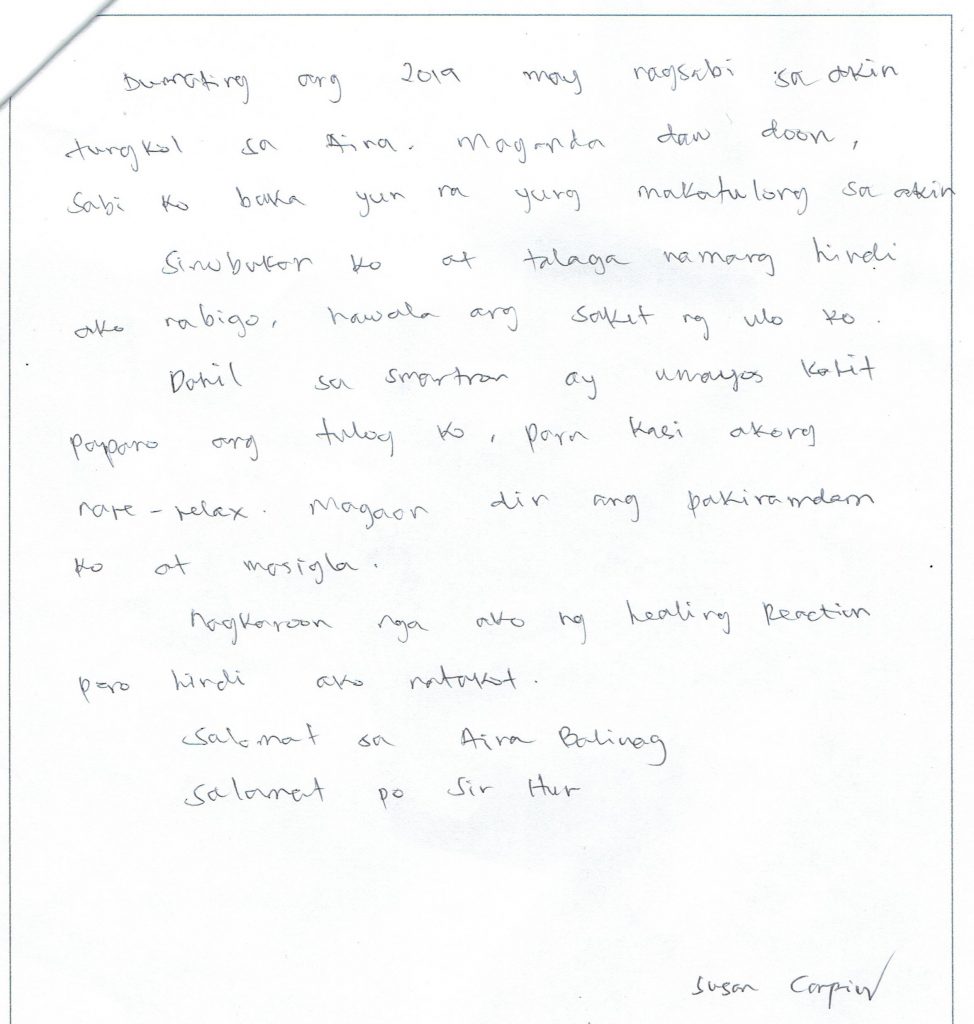 Dumating ang 2019 may nagsabi sa akin
tungkol sa Aira. Maganda daw doon,
sabi ko baka yun na yung makatulong sa akin
Sinubukan ko at talaga namang hindi
ako nabigo, nawala ang saket ng ulo ko.
Dahil sa smartron ay umayos kahit
papano ang tulog ko, para kasi akong
nare-relax. Magaon din ang pakiramdam
ko at masigla.
Nagkaroon nga ako ng healing Reaction
pero hindi ako natakot.
Salamat sa Aira Baliuag
Salamat po Sir Hur
Susan